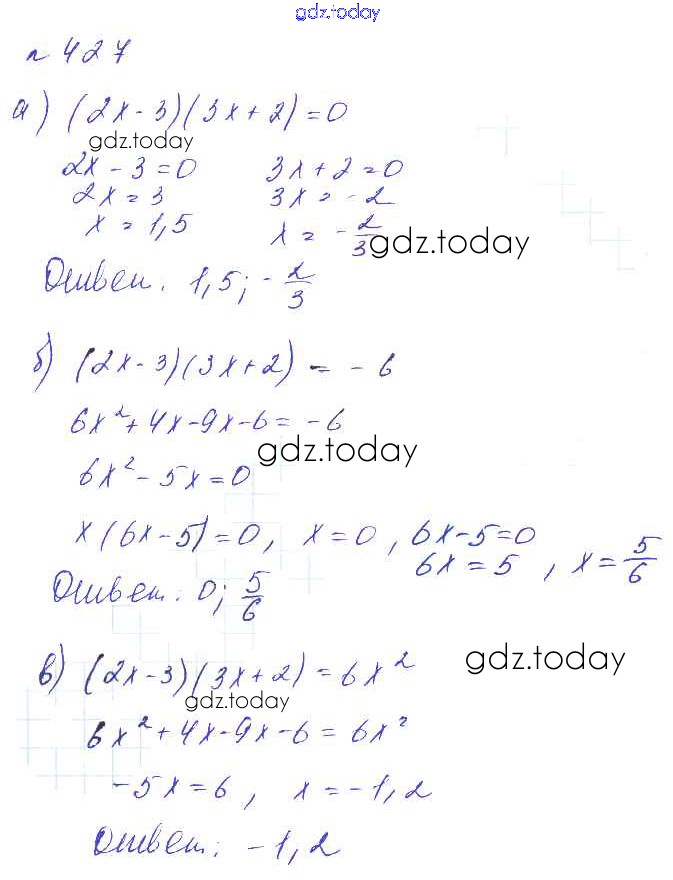 gdz.today
№ 427
а) (2x - 3)(3x + 2) = 0
gdz.today
2x - 3 = 0 3x + 2 = 0
2x = 3 3x = - 2
x = 1,5 x = - 2/3
gdz.today
Ответ: 1,5; - 2/3
б) (2x - 3)(3x + 2) = - 6
6x² + 4x - 9x - 6 = - 6
gdz.today
6x² - 5x = 0
x(6x - 5) = 0, x = 0, 6x - 5 = 0
6x = 5, x = 5/6
Ответ: 0; 5/6
в) (2x - 3)(3x + 2) = 6x²
gdz.today
gdz.today
6x² + 4x - 9x - 6 = 6x²
-5x = 6, x = -1,2
Ответ: -1,2